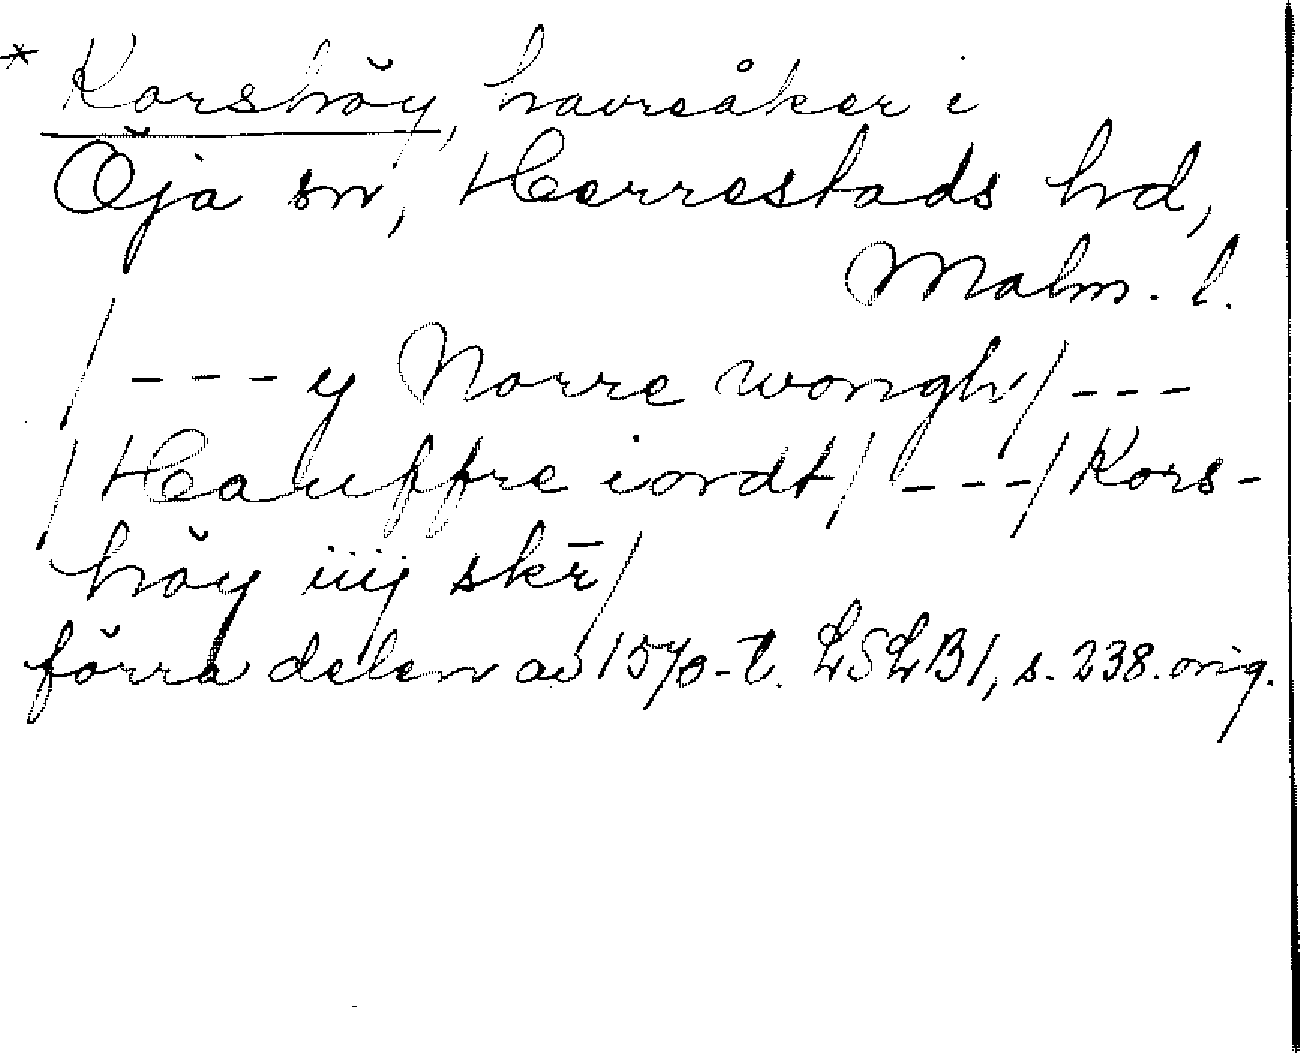 * Korshöy, havreåker i
Öja sn, Herrestads hd,
Malm. l.
/ - - - y Norre wongh / - - -
/ Hauffre iordt / - - - / Kors-
höy iiij skr̄ /
förra delen av 1570-t. LSLB1, s. 238. orig.